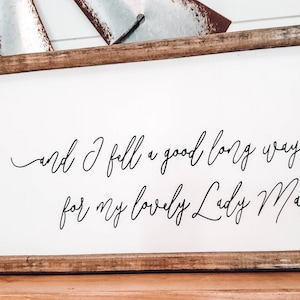 and I fell a good long way
for my lovely Lady Ma